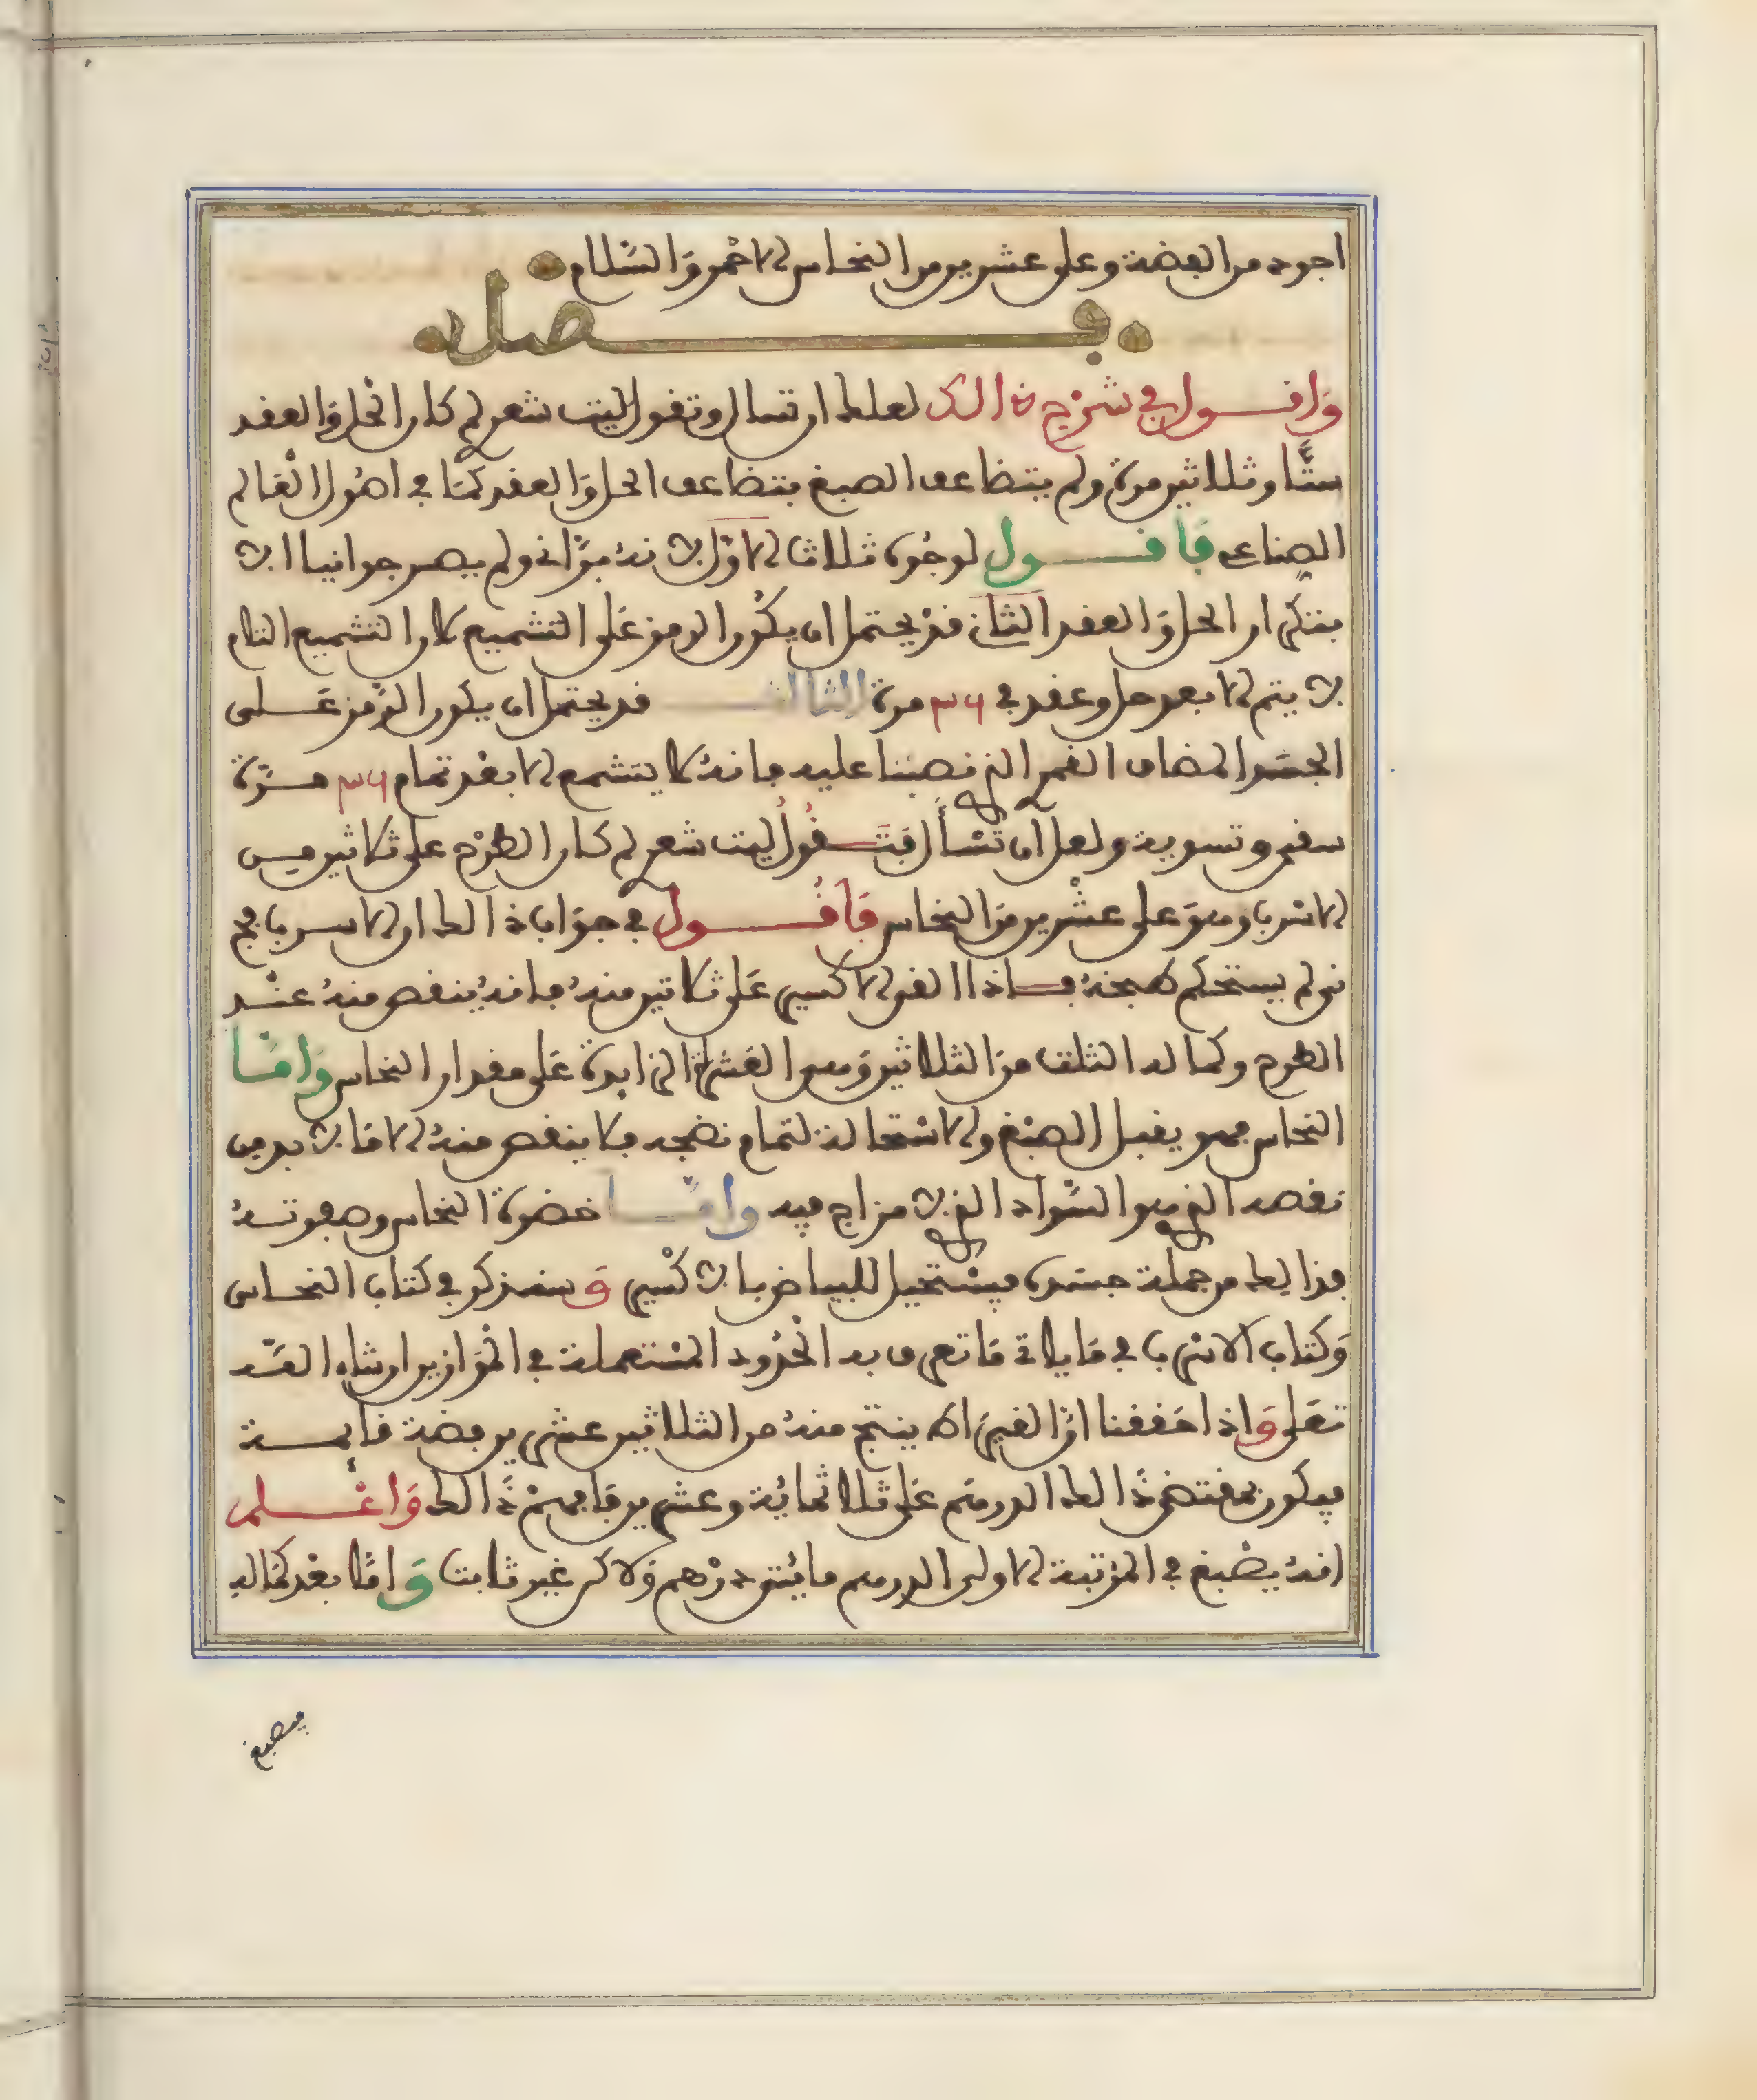 اجود من الفضة وعلى عشرين من النحاس الاحمر والسلام
فصل
وَاقول في شرح ذالك لعلك ان تسال وتقول ليت شعري لم كان الحل والعقد
ستًّا وثلاثين مرة ولم يتضاعف الصبغ بتضاعف الحل وَالعقد كمَا في اصُول العَالم
الصناعي فَأقول لوجُوه ثلاثا الاوّل لانهُ برَّاني ولم يصر جوانيا الا
بتكرار الحل وَالعقد الثاني قدْ يحتمل ان يكُون الرمز عَلى التشميع لان التشميع التام
لا يتم الا بعد حل وعقد في ٣٦ مرة الثالث قد يحتمل ان يكون الرَّمز عَلى
الجسَد المضاف القمر الذي نصبْنا عليه فانهُ لا يتشمع الا بعْد تمام ٣٦ مرَّة
سقي وتسوية ولعل ان تسْأل فتَقُولُ ليت شعري لم كان الطرْح على ثلاثين من
الاسْرب وهوَ على عشْرين مِن النحاس فَأقُول في جوَاب ذالك ان الاسرب فج
ني لم يستحكم طبخهُ فاذا القي الاكسير عَلى ثلاثين منهُ فانهُ ينقص منهُ عنْد
الطرح وكماله الثلث منَ الثلاثين وَهو العَشرة الزايدة عَلى مقدار النحاس وَامَّا
النحاس فهو يقبل الصبْغ والاسْتحالة لتمام نضجه فلا ينقص منهُ الا مَا لا بد من
نقصه الذي هو السَّواد الذي لا مزاج فيه وامَّا خضرة النحاس وصفوتهُ
فذالك من جملة جسَده فيسْتحيل للبياض بالاكْسير وَسنذكر في كتاب النحاس
وَكتاب الاسْرب في مَا ياتي مَا تعرف به الحُدُود المسْتعملة في الموَازين ان شاء اللّه
تعَلى وَاذا حَققنا انَّ القيراط ينتج منهُ من الثلاثين عشرين فضة قايمة
فيكون بمقتضى ذَالك الدرهم عَلى ثلاثمائة وعشرين فَافهمْ ذَالك وَاعْلم
انهُ يصْبغ في المرْتبة الاولى الدرهم مائتي درْهم وَلاكن غير ثابت وَامَّا بعْد كمَاله
فيصبغ